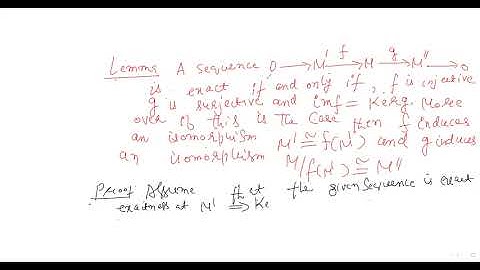 Lemma A sequence 0 → M' f→ M g→ M'' → 0
is exact if and only if, f is injective
g is surjective and imf = Kerg. More
over if this is the case then f induces
an isomorphism M' ≅ f(M') and g induces
an isomorphism M/f(M') ≅ M''
Proof Assume that the given sequence is exact
exactness at M' ⇒ Ke